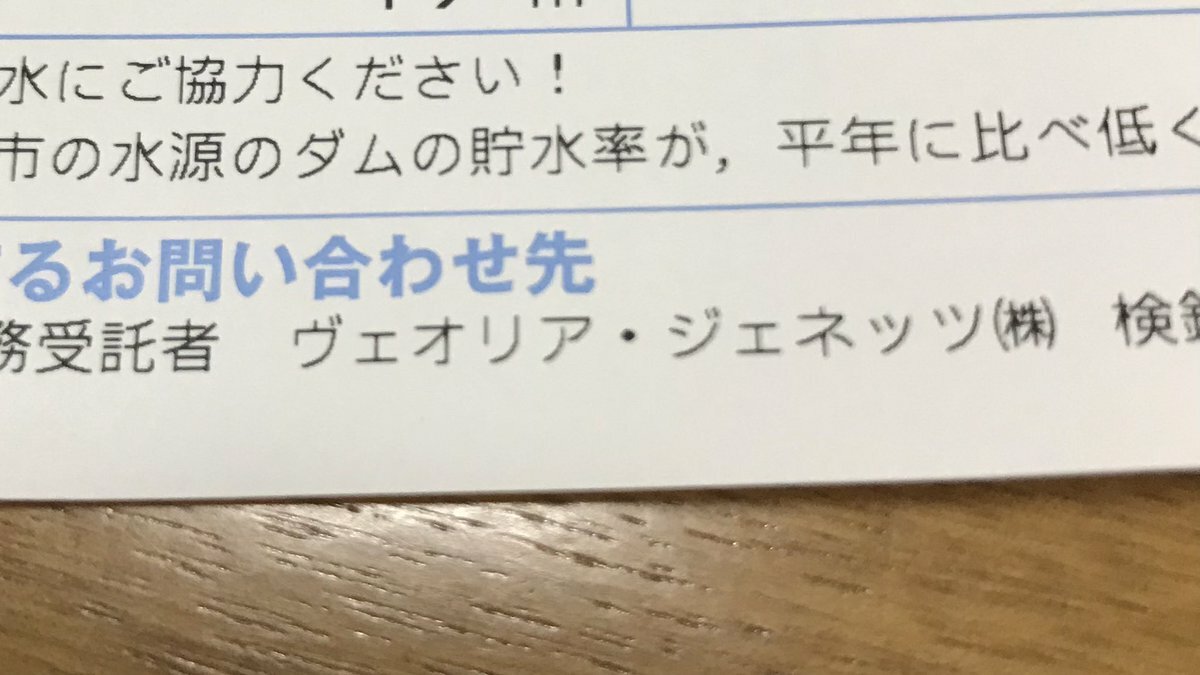 水にご協力ください！
市の水源のダムの貯水率が，平年に比べ低く
るお問い合わせ先
務受託者　ヴェオリア・ジェネッツ㈱　検針